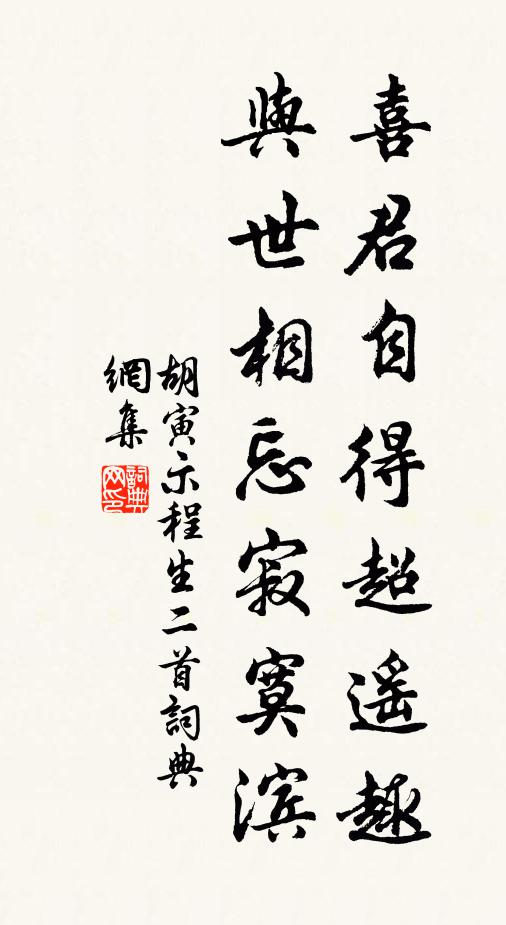 喜君自得超遥趣
與世相忘寂寞滨
胡寅示程生二首詞典
網集
詞典
网印